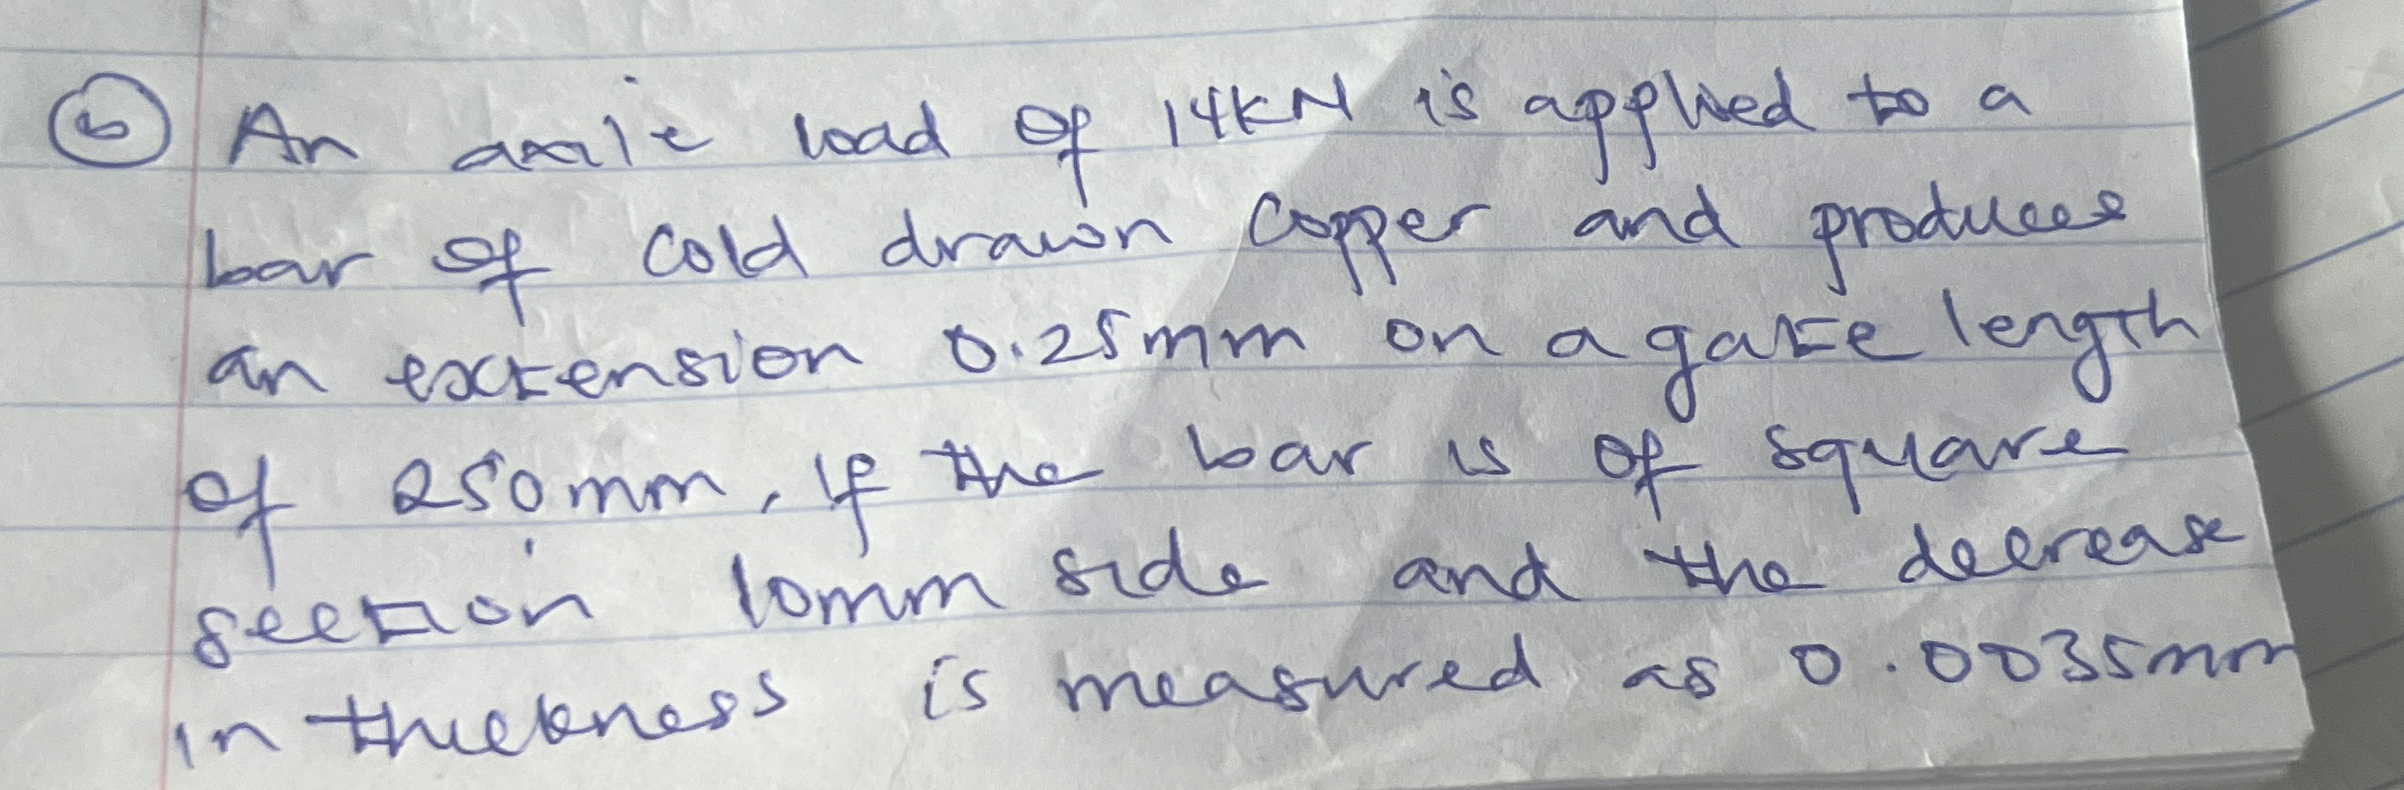 6 An axile load of 14kN is applied to a
bar of cold drawn copper and produces
an extension 0.25mm on a gate length
of 250mm, if the bar is of square
section 10mm side and the decrease
in thickness is measured as 0.0035mm